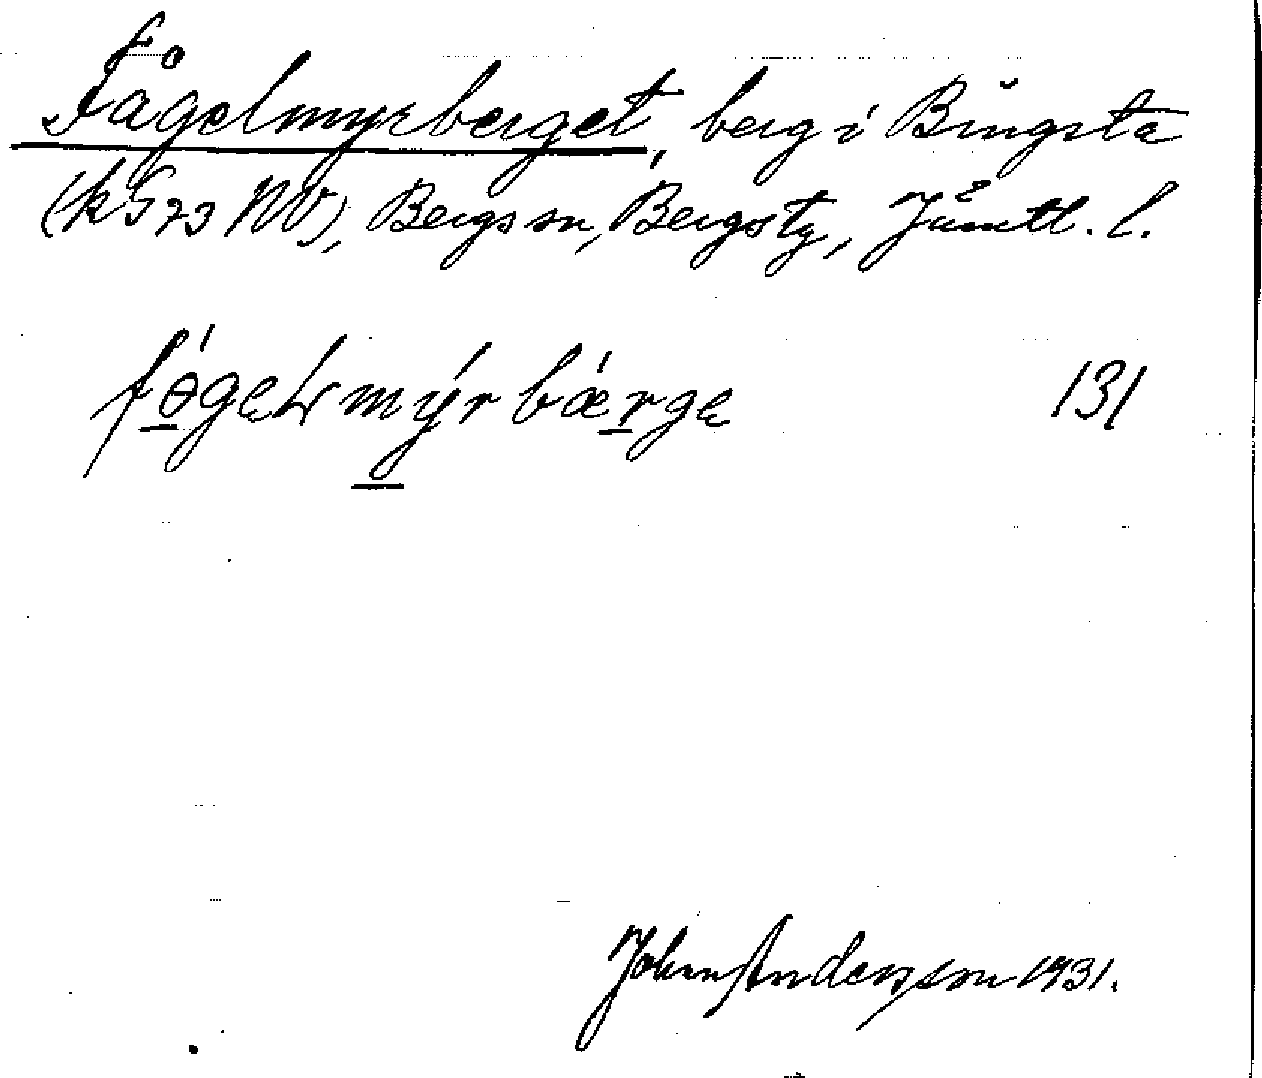 Få
Fågelmyrberget, berg i Bingsta
(kG73 NV), Bergs sn, Bergs tg, Jämtl. l.
fǿgeḷmýrbǽrge 131
John Andersson 1931.